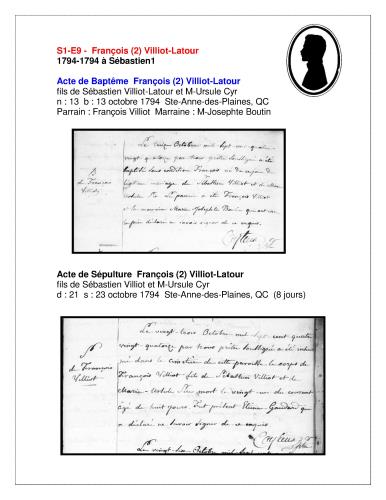 S1-E9 - François (2) Villiot-Latour
1794-1794 à Sébastien1
Acte de Baptême François (2) Villiot-Latour
fils de Sébastien Villiot-Latour et M-Ursule Cyr
n : 13 b : 13 octobre 1794 Ste-Anne-des-Plaines, QC
Parrain : François Villiot Marraine : M-Josephte Boutin
Le treize Octobre mil sept cent quatre
vingt quatorze par nous prêtre soussigné a été
B
baptisé sous condition François né du
de François
légitime mariage de Sébastien Villiot et de Marie
Villiot
Le parrain a été François Villiot
et la marraine Marie Josephte Boutin qui ont
déclaré ne savoir signer de ce requis.
Acte de Sépulture François (2) Villiot-Latour
fils de Sébastien Villiot et M-Ursule Cyr
d : 21 s : 23 octobre 1794 Ste-Anne-des-Plaines, QC (8 jours)
Le vingt-trois Octobre mil sept cent quatre
vingt-quatorze par nous prêtre soussigné a été inhu
S
mé dans le cimetière de cette paroisse le corps de
de François
François Villiot fils de Sébastien Villiot et de
Villiot
Marie mort le vingt-un du courant
âgé de huit jours. Fut présent Etienne
a déclaré ne savoir signer de ce requis.
Le vingt-trois Octobre mil